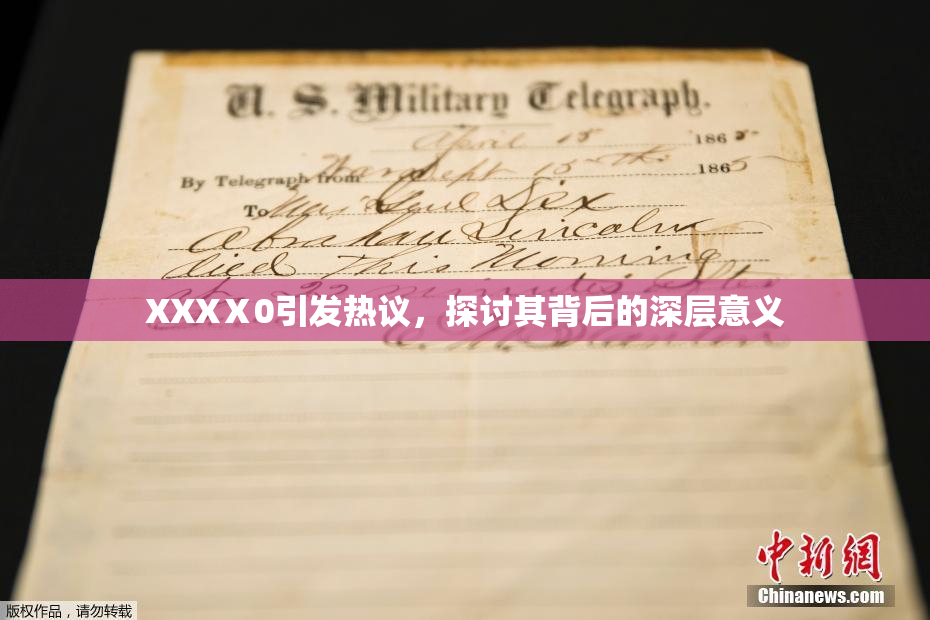 U. S. Military Telegraph.
April 15 1865
By Telegraph from War Dept 15th 1865
To Maj Genl Dix
Abraham Lincoln
died This Morning
at 22 minutes after
XXXX0引发热议，探讨其背后的深层意义
中新网
Chinanews.com
版权作品，请勿转载